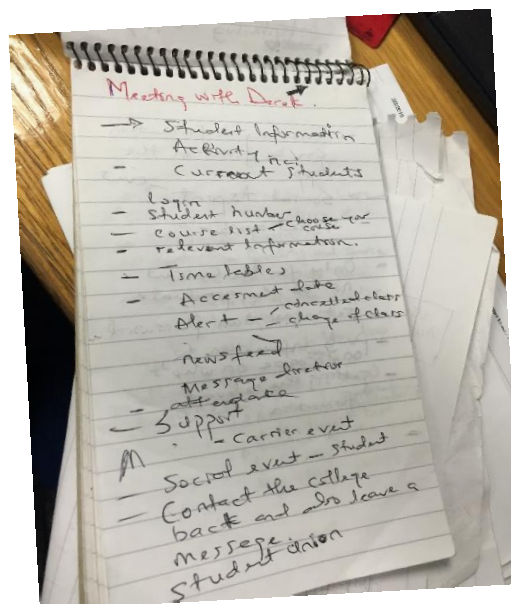 Meeting with Derek.
→ Student Information
Activity
- Current Students
Login
- Student number
- Course list - choose your course
- relevent Information.
- Time tables
- Accesment date
Alert - - cancelled class
- change of class
newsfeed
Message
- attendate
- Support
- Carrier event
M
- Social event - Student
- Contact the college
back and also leave a
messege.
Student union